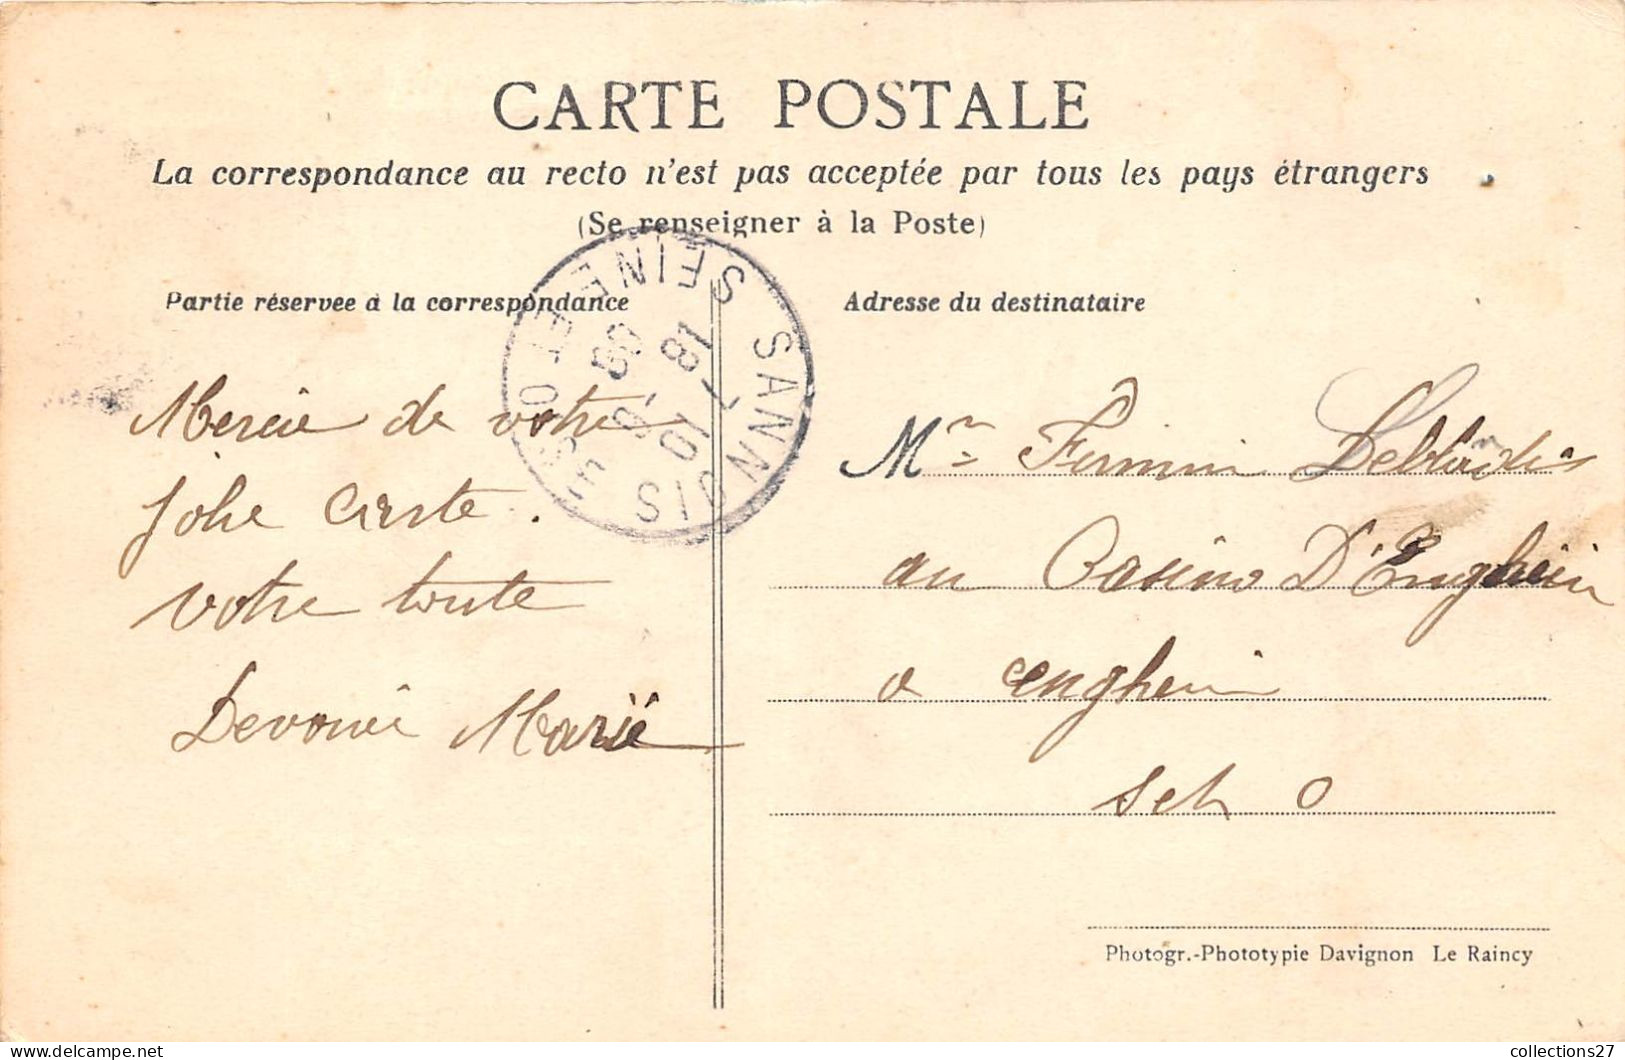 CARTE POSTALE
La correspondance au recto n'est pas acceptée par tous les pays étrangers
(Se renseigner à la Poste)
Partie réservée à la correspondance
Mercie de votre
jolie carte.
Votre toute
Devouée Marie
SANNOIS
SEINE-ET-OISE
18-
10
-8
09
Adresse du destinataire
Mr Firmin
au Casino D'Enghein
a enghein
Set O
Photogr.-Phototypie Davignon Le Raincy
collections27